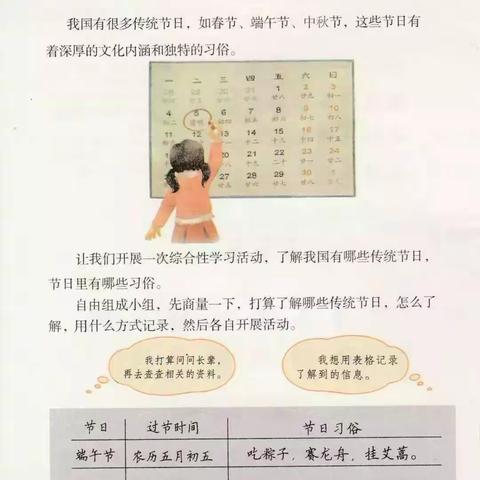 我国有很多传统节日，如春节、端午节、中秋节，这些节日有
着深厚的文化内涵和独特的习俗。
一 二 三 四 五 六 日
1 2 3
4 5 6 7 8 9 10
初二 清明 初四 初五 初六 初七 初八
11 12 13 14 15 16 17
20 21 22 23 24
27 28 29 30
让我们开展一次综合性学习活动，了解我国有哪些传统节日，
节日里有哪些习俗。
自由组成小组，先商量一下，打算了解哪些传统节日，怎么了
解，用什么方式记录，然后各自开展活动。
我打算问问长辈，
再去查查相关的资料。
我想用表格记录
了解到的信息。
节日 过节时间 节日习俗
端午节 农历五月初五 吃粽子，赛龙舟，挂艾蒿。